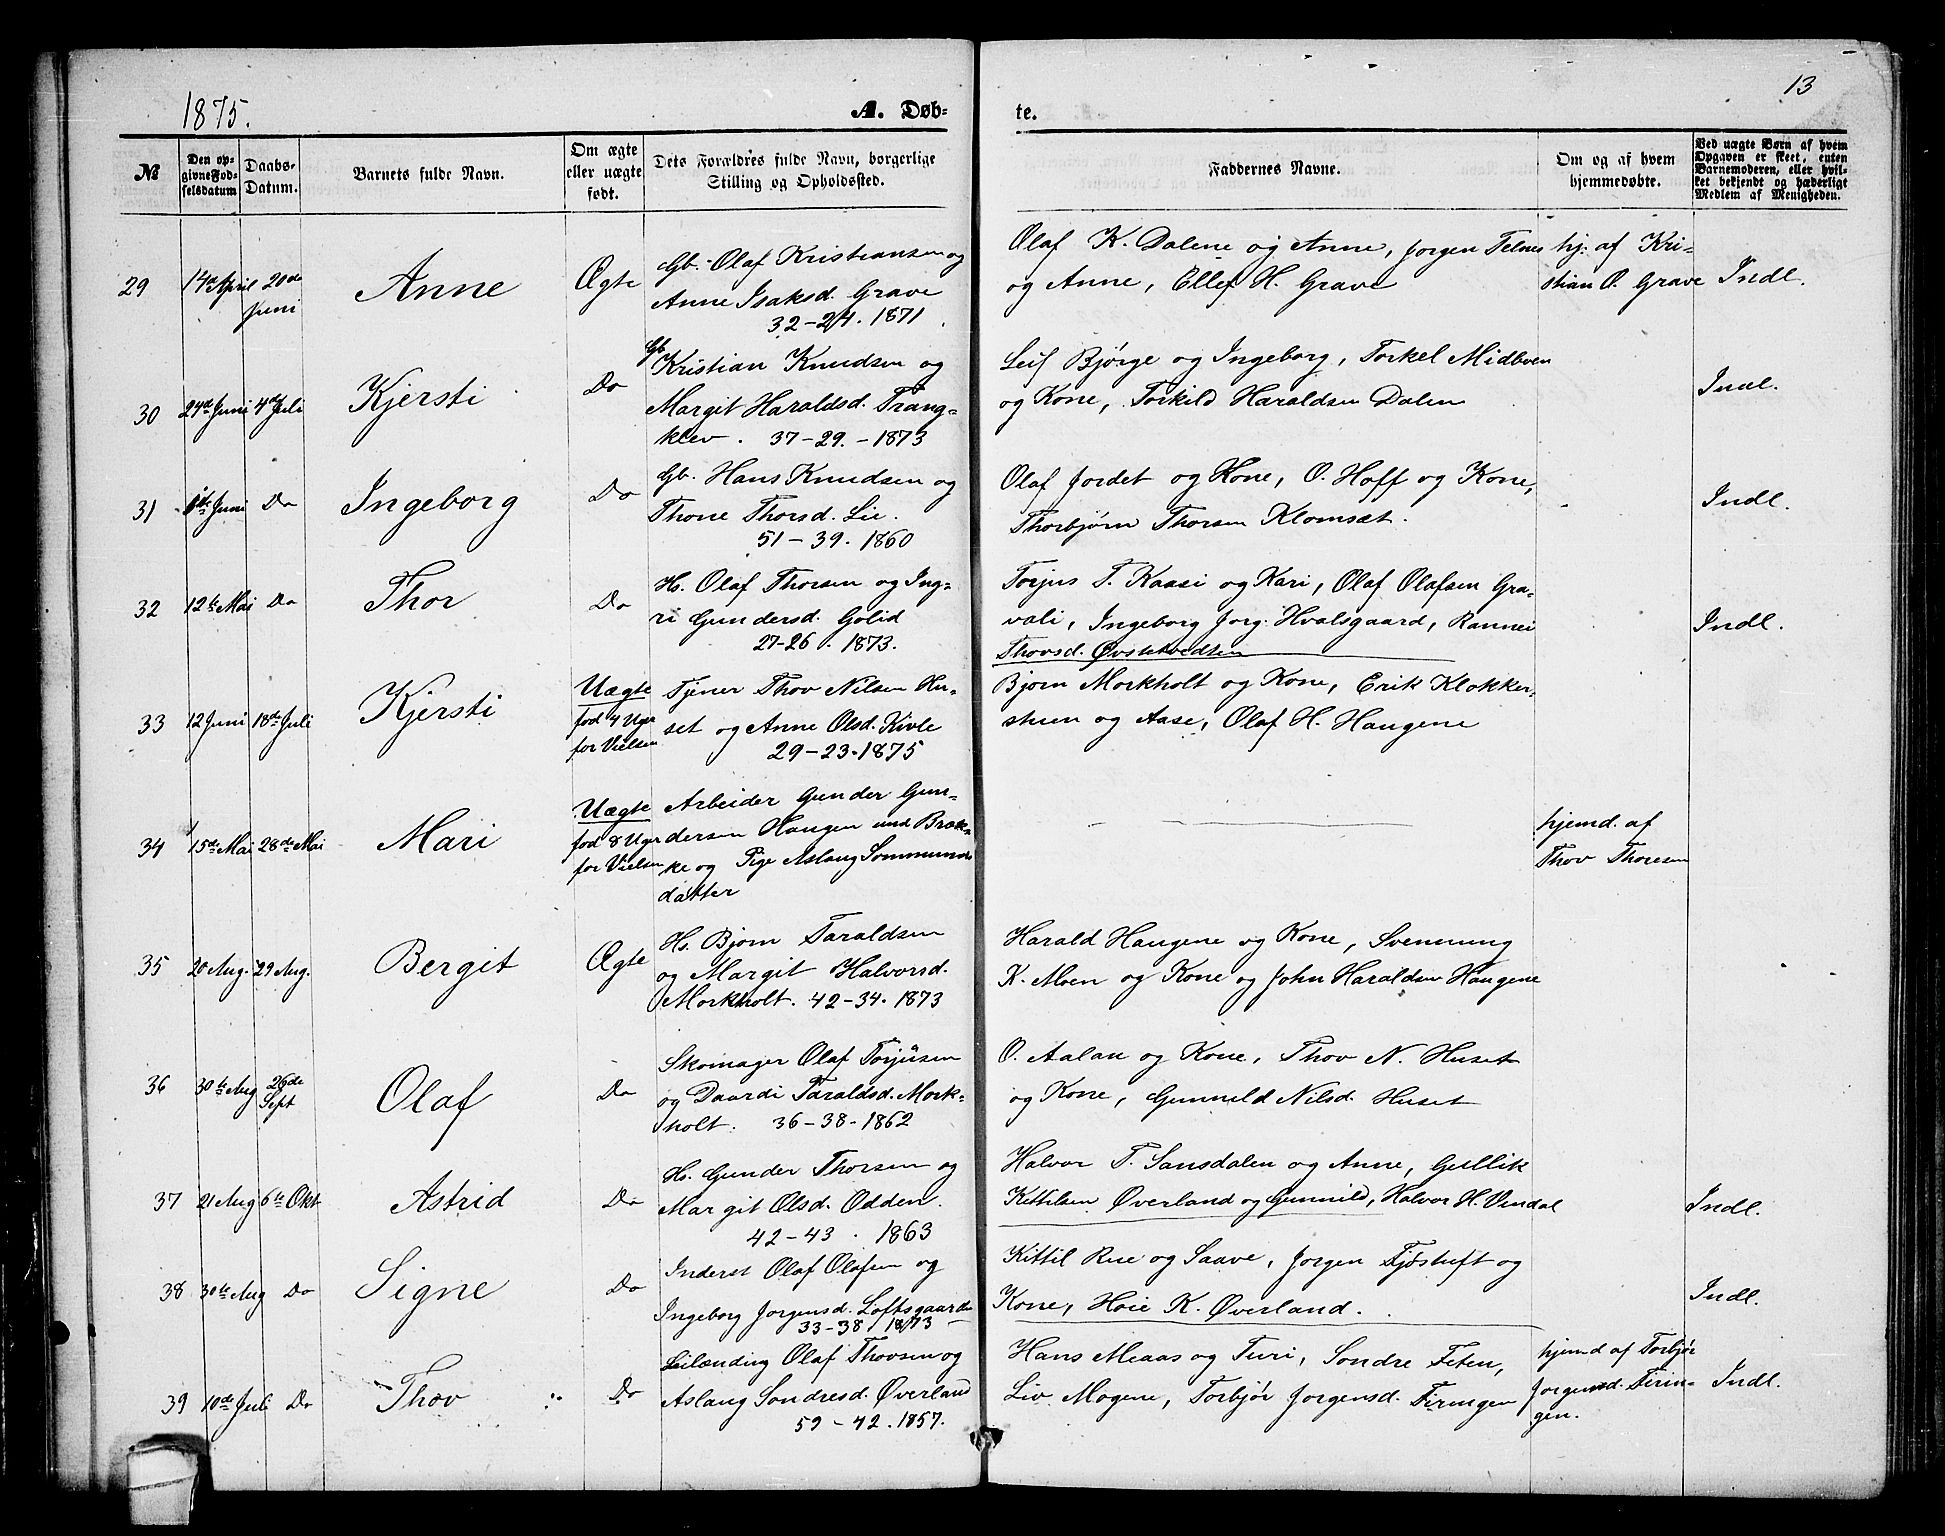 1875.
A. Døb-
te.
13
№
Den op-
givne Fød-
selsdatum
Daabs-
Datum.
Barnets fulde Navn.
Om ægte
eller uægte
født.
Dets Forældres fulde Navn, borgerlige
Stilling og Opholdssted.
Faddernes Navne.
Om og af hvem
hjemmedøbte.
Ved uægte Børn af hvem
Opgaven er skeet, enten
Barnemoderen, eller hvil-
ket bekjendt og hæderligt
Medlem af Menigheden.
29
14de April
20de
Juni
Anne
Ægte
Gb. Olaf Kristiansen og
Anne Isaksd. Grave
32-24. 1871
Olaf K. Dalene og Anne, Jorgen Telnes
og Anne, Ellef H. Grave
hj: af Kri-
stian O. Grave
Indl.
30
24de Juni
4de Juli
Kjersti
Do
Gb
Kristian Knudsen og
Margit Haraldsd. Trang-
klev. 37-29.-1873
Leif Bjørge og Ingeborg, Torkel Midboen
og Kone, Torkild Haraldsen Dalen
Indl.
31
Juni
Do
Ingeborg
Do
Gb. Hans Knudsen og
Thone Thorsd. Lie.
51-39. 1860
Olaf Jordet og Kone, O. Hoff og Kone,
Thorbjørn Thorsen Klomsæt.
Indl.
32
12te Mai
Do
Thor
Do
Hs. Olaf Thorsen og Ing-
ri Gundersd. Golid
27-26. 1873.
Torjus T. Kaasi og Kari, Olaf Olafsen Gra-
vali, Ingeborg Jorg. Hvalsgaard, Rannei
Thovsd. Øvstetvedten
Indl.
33
12 Juni
18de Juli
Kjersti
Uægte
fød 4 Uger
for Vielsen
Tjener Thov Nilsen Hu-
set og Anne Olsd. Kivle
29-23-1875
Bjorn Morkholt og Kone, Erik Klokker-
stuen og Aase, Olaf H. Haugene
34
15de Mai
28de Mai
Mari
Uægte
fød 8 Uger
for Vielsen
Arbeider Gunder Gun-
dersen Haugen und Bræk-
ke og Pige Aslaug Sommunds
datter
hjemd. af
Thov Thoresen
35
20 Aug.
29 Aug.
Bergit
Ægte
Hs. Bjorn Taraldsen
og Margit Halvorsd.
Morkholt. 42-34. 1873
Harald Haugene og Kone, Svennung
K. Moen og Kone og John Haraldsen Haugene
36
30te Aug
26de
Sept
Olaf
Do
Skomager Olaf Torjusen
og Daardi Taraldsd. Mork-
holt. 36-38-1862
O. Aalan og Kone, Thov N. Huset
og Kone, Gunnild Nilsd. Huset
37
21 Aug
6te Okt
Astrid
Do
Hs. Gunder Thorsen og
Margit Olsd. Odden.
42-43. 1863
Halvor T. Sansdalen og Anne, Gullik
Kittilsen Øverland og Gunnild, Halvor H. Vindal
Indl.
38
30te Aug
Do
Signe
Do
Inderst Olaf Olafsen og
Ingeborg Jorgensd. Loftsgaarden
33-38 1873
Kittil Rue og Saave, Jorgen Tjøstuft og
Kone, Hoie K. Øverland.
Indl.
39
10de Juli
Do
Thov
Do
Leilænding Olaf Thovsen og
Aslaug Sondresd. Øverland
59-42. 1857.
Hans Meaas og Turi, Sondre Feten,
Liv Mogene, Torbjør Jorgensd. Tiringen
hjemd af Torbjør
Jorgensd. Tirin-
gen.
Indl.